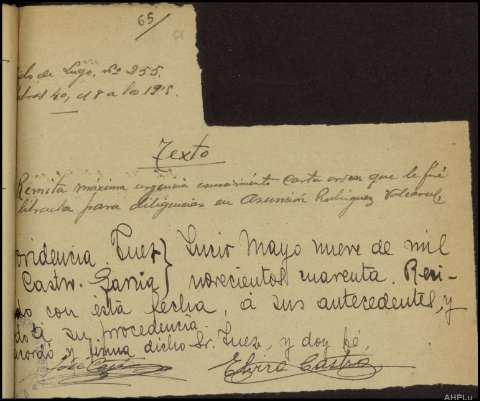 65
do de Lugo. nº 255.
40, d 8 a las 19's.
Texto
Remita máxima urgencia cumplimiento carta orden que le fué
librada para diligencias en Asunción Rodríguez Valcarcel
ovidencia Juez } Lucio Mayo nueve de mil
Castro. García } novecientos cuarenta. Reci-
do con esta fecha, á sus antecedentes, y
su procedencia
acordó y firma dicho Sr. Juez, y doy fé,
Castro
AHPLu